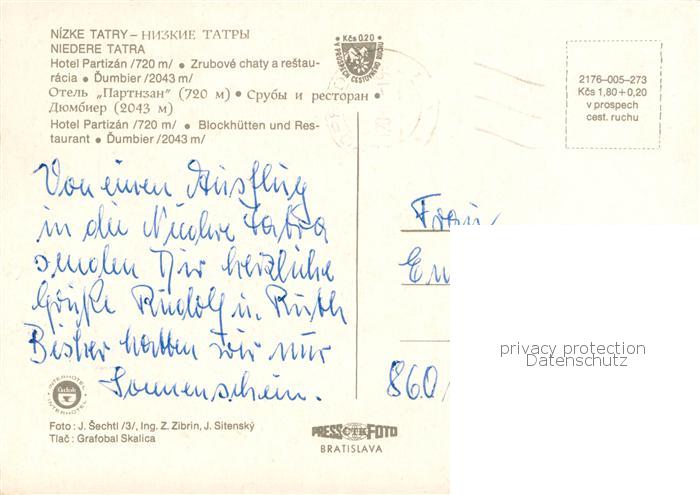 NÍZKE TATRY – НИЗКИЕ ТАТРЫ
NIEDERE TATRA
Hotel Partizán /720 m/ • Zrubové chaty a reštau-
rácia • Ďumbier /2043 m/
Отель „Партизан" (720 м) • Срубы и ресторан •
Дюмбиер (2043 м)
Hotel Partizán /720 m/ • Blockhütten und Res-
taurant • Ďumbier /2043 m/
Kčs 0.20
V PROSPECH CESTOVNÉHO RUCHU
2176-005-273
Kčs 1,80+0,20
v prospech
cest. ruchu
Von einem Ausflug
in die Niedere Tatra
senden Dir herzliche
Grüße Rudolf u. Ruth
Bisher hatten wir nur
Sonnenschein.
Frau
860
privacy protection
Datenschutz
INTERHOTEL
Čedok
INTERHOTEL
Foto: J. Šechtl /3/, Ing. Z. Zibrin, J. Sitenský
Tlač: Grafobal Skalica
PRESS ČTK FOTO
BRATISLAVA